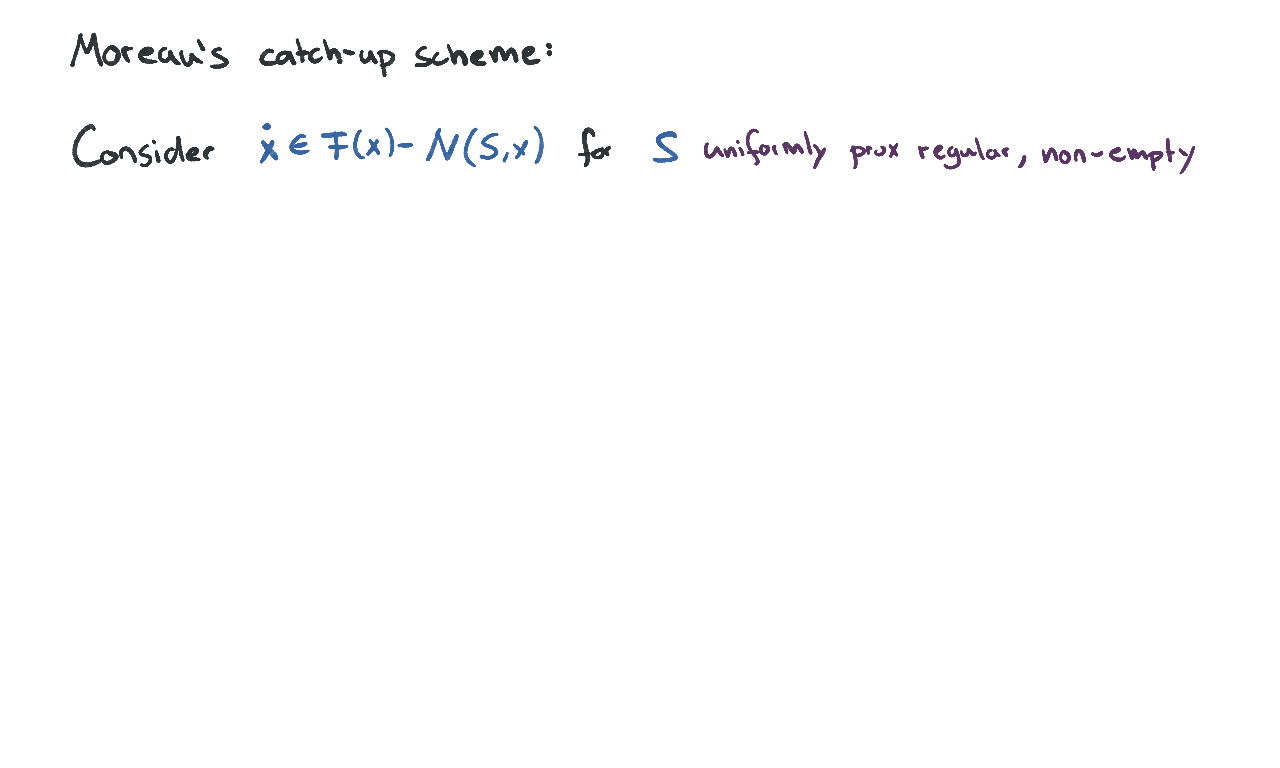 Moreau's catch-up scheme:
Consider ẋ ∈ F(x) - N(S,x) for S uniformly prox regular, non-empty